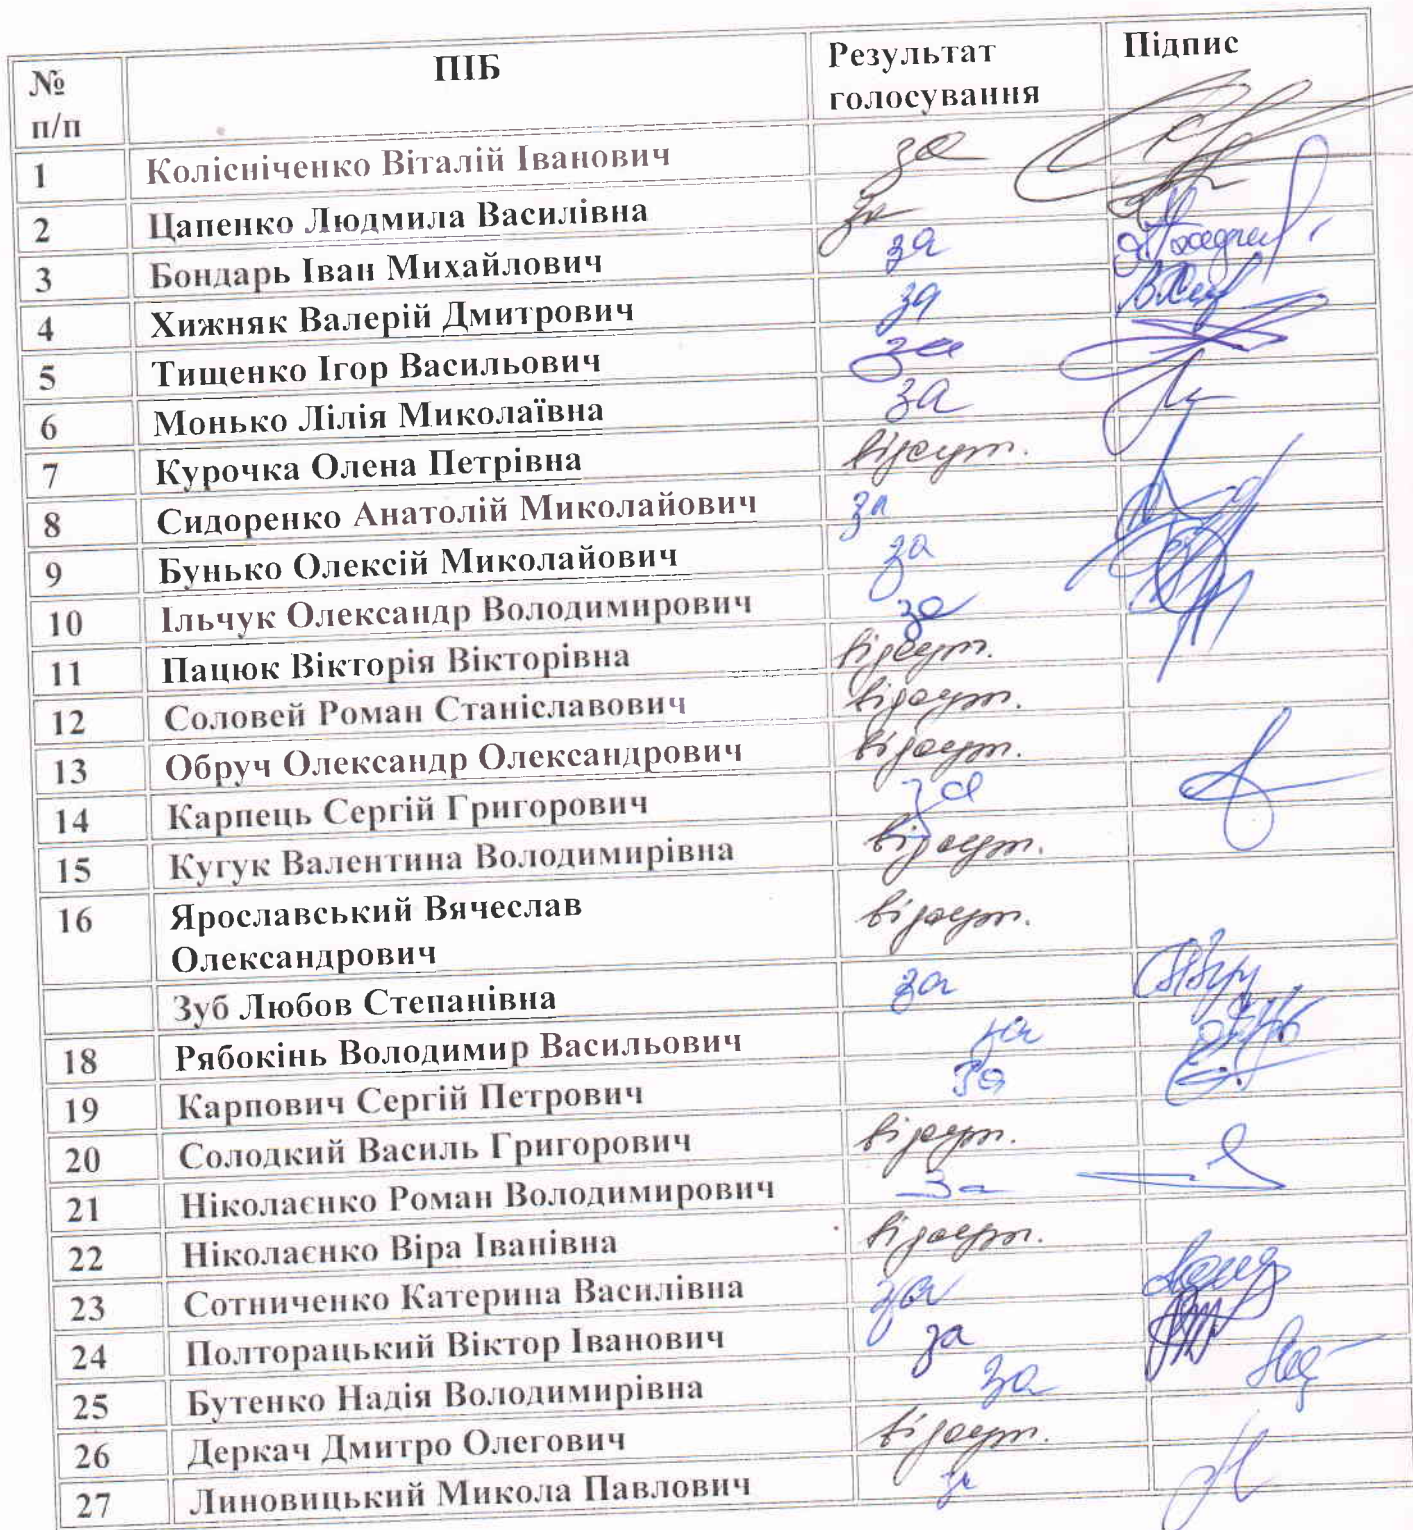 № п/п ПІБ Результат голосування Підпис
1 Колісніченко Віталій Іванович за
2 Цапенко Людмила Василівна за
3 Бондарь Іван Михайлович за
4 Хижняк Валерій Дмитрович за
5 Тищенко Ігор Васильович за
6 Монько Лілія Миколаївна за
7 Курочка Олена Петрівна відсут.
8 Сидоренко Анатолій Миколайович за
9 Бунько Олексій Миколайович за
10 Ільчук Олександр Володимирович за
11 Пацюк Вікторія Вікторівна відсут.
12 Соловей Роман Станіславович відсут.
13 Обруч Олександр Олександрович відсут.
14 Карпець Сергій Григорович за
15 Кугук Валентина Володимирівна відсут.
16 Ярославський Вячеслав відсут.
Олександрович
Зуб Любов Степанівна за
18 Рябокінь Володимир Васильович за
19 Карпович Сергій Петрович за
20 Солодкий Василь Григорович відсут.
21 Ніколаєнко Роман Володимирович за
22 Ніколаєнко Віра Іванівна відсут.
23 Сотниченко Катерина Василівна за
24 Полторацький Віктор Іванович за
25 Бутенко Надія Володимирівна за
26 Деркач Дмитро Олегович відсут.
27 Линовицький Микола Павлович за